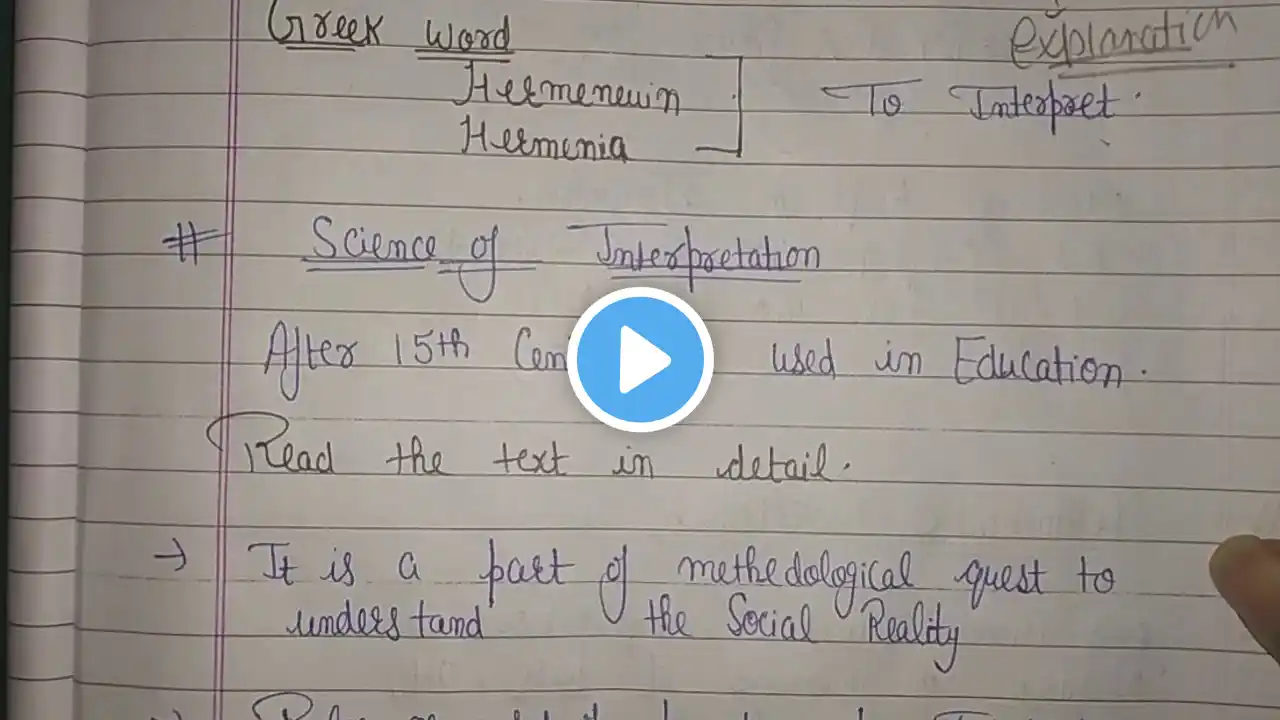 Greek Word
explanation
Hermeneuin
Hermenia
To Interpret.
# Science of Interpretation
After 15th Cen used in Education.
Read the text in detail.
→ It is a part of methedological quest to
understand the Social Reality